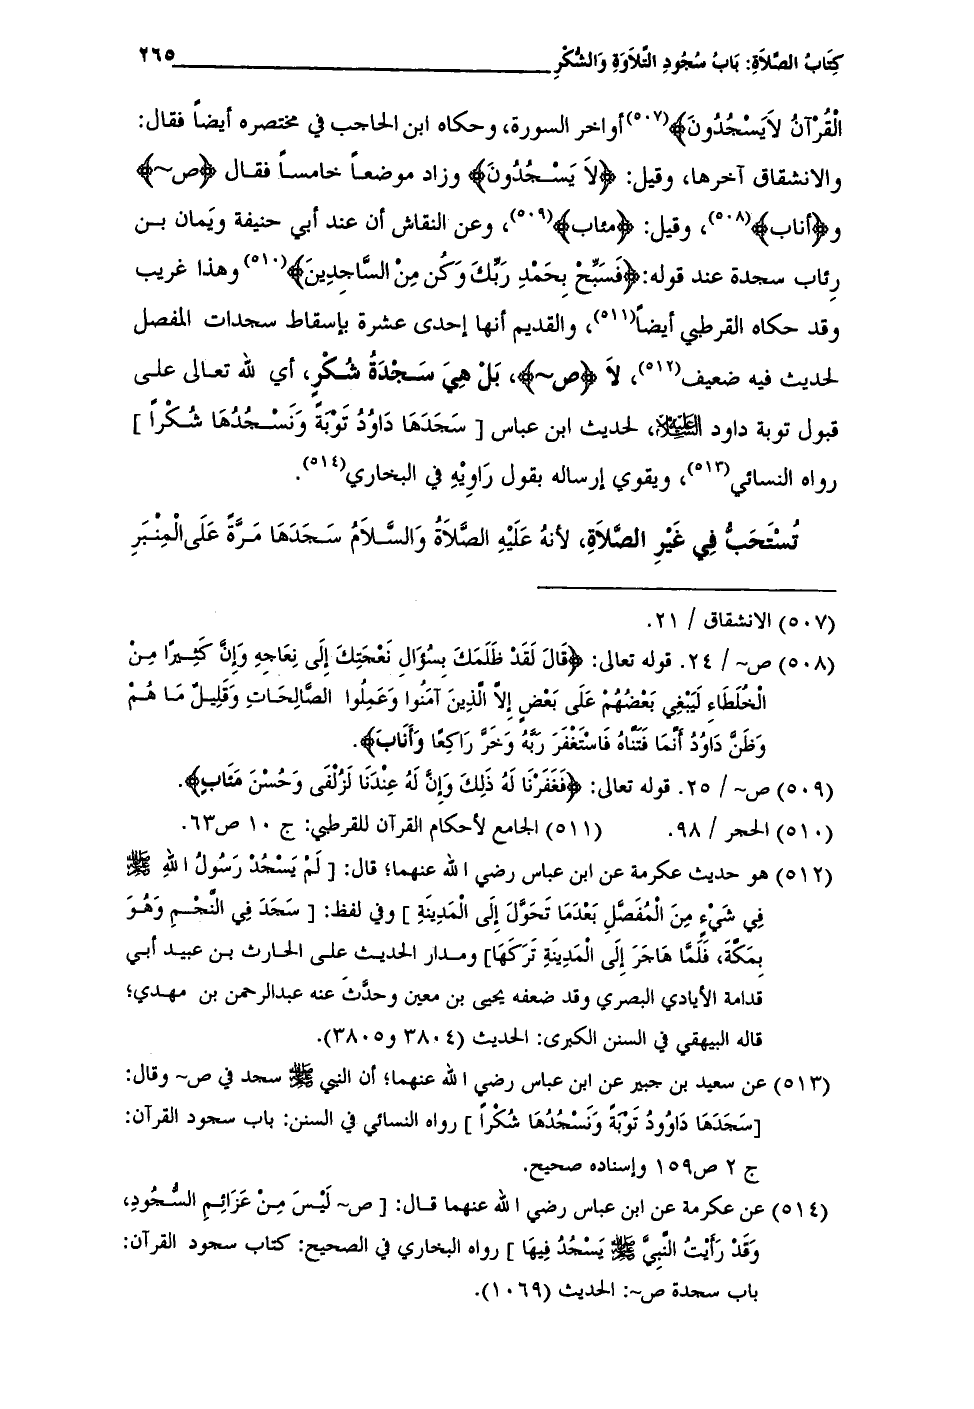 كِتَابُ الصَّلاَةِ: بَابُ سُجُودِ التِّلاَوَةِ وَالشُّكْرِ ٢٦٥
الْقُرْآنُ لاَيَسْجُدُونَ﴾(٥٠٧) أواخر السورة، وحكاه ابن الحاجب في مختصره أيضاً فقال:
والانشقاق آخرها، وقيل: ﴿لاَ يَسْجُدُونَ﴾ وزاد موضعاً خامساً فقال ﴿ص~﴾
و﴿أناب﴾(٥٠٨)، وقيل: ﴿مئاب﴾(٥٠٩)، وعن النقاش أن عند أبي حنيفة ويَمان بن
رِئاب سجدة عند قوله:﴿فَسَبِّحْ بِحَمْدِ رَبِّكَ وَكُن مِنْ السَّاجِدِينَ﴾(٥١٠) وهذا غريب
وقد حكاه القرطبي أيضاً(٥١١)، والقديم أنها إحدى عشرة بإسقاط سجدات المفصل
لحديث فيه ضعيف(٥١٢)، لاَ ﴿ص~﴾، بَلْ هِيَ سَجْدَةُ شُكْرٍ، أي لله تعالى على
قبول توبة داود الطَّيِّلا، لحديث ابن عباس [ سَجَدَهَا دَاوُدُ تَوْبَةً وَنَسْجُدُهَا شُكْراً ]
رواه النسائي(٥١٣)، ويقوي إرساله بقول رَاوِيْهِ في البخاري(٥١٤).
تُسْتَحَبُّ فِي غَيْرِ الصَّلاَةِ، لأنهُ عَلَيْهِ الصَّلاَةُ وَالسَّلاَمُ سَجَدَهَا مَرَّةً عَلَى الْمِنْبَرِ
(٥٠٧) الانشقاق / ٢١.
(٥٠٨) ص~ / ٢٤. قوله تعالى: ﴿قَالَ لَقَدْ ظَلَمَكَ بِسُؤَالِ نَعْجَتِكَ إِلَى نِعَاجِهِ وَإِنَّ كَثِيرًا مِنْ
الْخُلَطَاءِ لَيَبْغِي بَعْضُهُمْ عَلَى بَعْضٍ إِلاَّ الَّذِينَ آمَنُوا وَعَمِلُوا الصَّالِحَاتِ وَقَلِيلٌ مَا هُمْ
وَظَنَّ دَاوُدُ أَنَّمَا فَتَنَّاهُ فَاسْتَغْفَرَ رَبَّهُ وَخَرَّ رَاكِعًا وَأَنَابَ﴾.
(٥٠٩) ص~ / ٢٥. قوله تعالى: ﴿فَغَفَرْنَا لَهُ ذَلِكَ وَإِنَّ لَهُ عِنْدَنَا لَزُلْفَى وَحُسْنَ مَئَابٍ﴾.
(٥١٠) الحجر / ٩٨. (٥١١) الجامع لأحكام القرآن للقرطبي: ج ١٠ ص٦٣.
(٥١٢) هو حديث عكرمة عن ابن عباس رضي الله عنهما؛ قال: [ لَمْ يَسْجُدْ رَسُولُ اللهِ ﷺ
فِي شَيْءٍ مِنَ الْمُفَصَّلِ بَعْدَمَا تَحَوَّلَ إِلَى الْمَدِينَةِ ] وفي لفظ: [ سَجَدَ فِي النَّجْمِ وَهُوَ
بِمَكَّةَ، فَلَمَّا هَاجَرَ إِلَى الْمَدِينَةِ تَرَكَهَا] ومدار الحديث على الحارث بن عبيد أبي
قدامة الأيادي البصري وقد ضعفه يحيى بن معين وحدَّثَ عنه عبدالرحمن بن مهدي؛
قاله البيهقي في السنن الكبرى: الحديث (٣٨٠٤ و٣٨٠٥).
(٥١٣) عن سعيد بن جبير عن ابن عباس رضي الله عنهما؛ أن النبي ﷺ سجد في ص~ وقال:
[سَجَدَهَا دَاوُودُ تَوْبَةً وَنَسْجُدُهَا شُكْراً ] رواه النسائي في السنن: باب سجود القرآن:
ج ٢ ص١٥٩ وإسناده صحيح.
(٥١٤) عن عكرمة عن ابن عباس رضي الله عنهما قال: [ ص~ لَيْسَ مِنْ عَزَائِمِ السُّجُودِ،
وَقَدْ رَأَيْتُ النَّبِيَّ ﷺ يَسْجُدُ فِيهَا ] رواه البخاري في الصحيح: كتاب سجود القرآن:
باب سجدة ص~: الحديث (١٠٦٩).